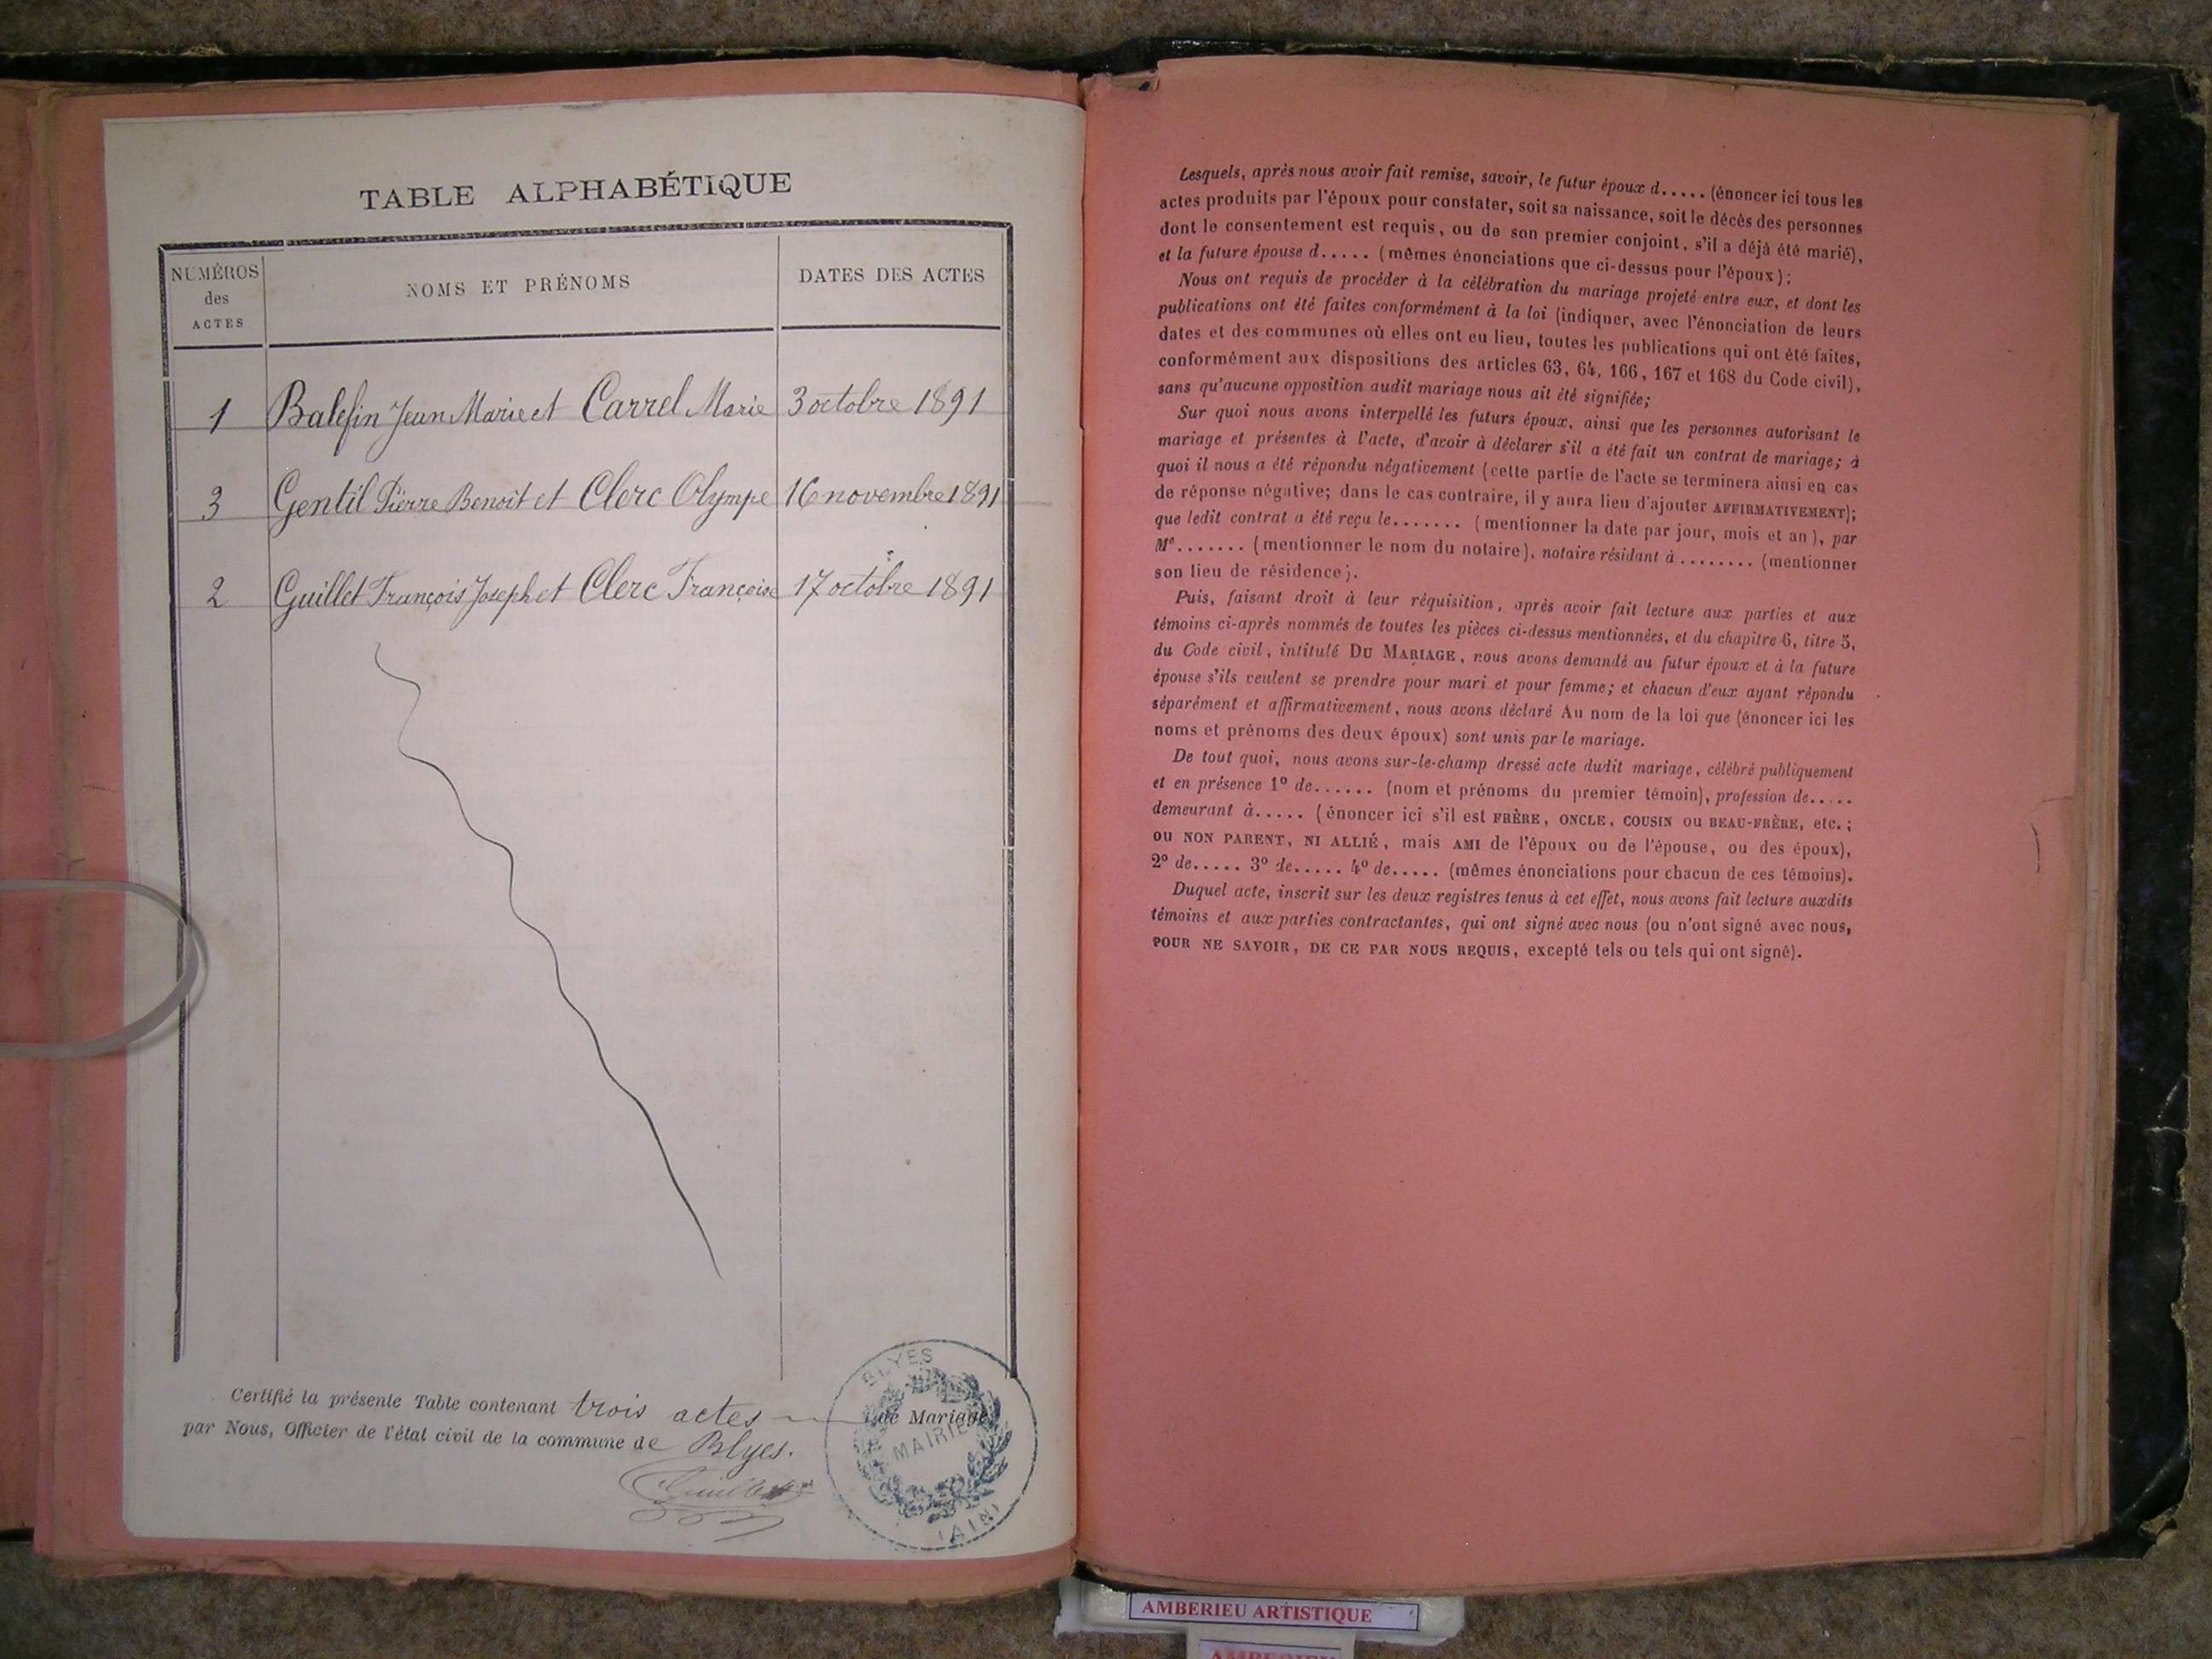 TABLE ALPHABÉTIQUE
NUMÉROS
des
ACTES
NOMS ET PRÉNOMS
DATES DES ACTES
1 Balefin Jean Marie et Carrel Marie 3 octobre 1891
3 Gentil Pierre Benoit et Clerc Olympe 16 novembre 1891
2 Guillet François Joseph et Clerc Françoise 17 octobre 1891
Certifié la présente Table contenant trois actes de Mariage
par Nous, Officier de l'état civil de la commune de Blyes.
BLYES
MAIRIE
(AIN)
Lesquels, après nous avoir fait remise, savoir, le futur époux d..... (énoncer ici tous les
actes produits par l'époux pour constater, soit sa naissance, soit le décès des personnes
dont le consentement est requis, ou de son premier conjoint, s'il a déjà été marié),
et la future épouse d..... (mêmes énonciations que ci-dessus pour l'époux);
Nous ont requis de procéder à la célébration du mariage projeté entre eux, et dont les
publications ont été faites conformément à la loi (indiquer, avec l'énonciation de leurs
dates et des communes où elles ont eu lieu, toutes les publications qui ont été faites,
conformément aux dispositions des articles 63, 64, 166, 167 et 168 du Code civil),
sans qu'aucune opposition audit mariage nous ait été signifiée;
Sur quoi nous avons interpellé les futurs époux, ainsi que les personnes autorisant le
mariage et présentes à l'acte, d'avoir à déclarer s'il a été fait un contrat de mariage; à
quoi il nous a été répondu négativement (cette partie de l'acte se terminera ainsi en cas
de réponse négative; dans le cas contraire, il y aura lieu d'ajouter AFFIRMATIVEMENT);
que ledit contrat a été reçu le....... (mentionner la date par jour, mois et an), par
Me....... (mentionner le nom du notaire), notaire résidant à ........ (mentionner
son lieu de résidence).
Puis, faisant droit à leur réquisition, après avoir fait lecture aux parties et aux
témoins ci-après nommés de toutes les pièces ci-dessus mentionnées, et du chapitre 6, titre 5,
du Code civil, intitulé DU MARIAGE, nous avons demandé au futur époux et à la future
épouse s'ils veulent se prendre pour mari et pour femme; et chacun d'eux ayant répondu
séparément et affirmativement, nous avons déclaré Au nom de la loi que (énoncer ici les
noms et prénoms des deux époux) sont unis par le mariage.
De tout quoi, nous avons sur-le-champ dressé acte dudit mariage, célébré publiquement
et en présence 1º de...... (nom et prénoms du premier témoin), profession de.....
demeurant à..... (énoncer ici s'il est FRÈRE, ONCLE, COUSIN ou BEAU-FRÈRE, etc.;
ou NON PARENT, NI ALLIÉ, mais AMI de l'époux ou de l'épouse, ou des époux),
2º de..... 3º de..... 4º de..... (mêmes énonciations pour chacun de ces témoins).
Duquel acte, inscrit sur les deux registres tenus à cet effet, nous avons fait lecture auxdits
témoins et aux parties contractantes, qui ont signé avec nous (ou n'ont signé avec nous,
POUR NE SAVOIR, DE CE PAR NOUS REQUIS, excepté tels ou tels qui ont signé).
AMBERIEU ARTISTIQUE
AMBERIEU